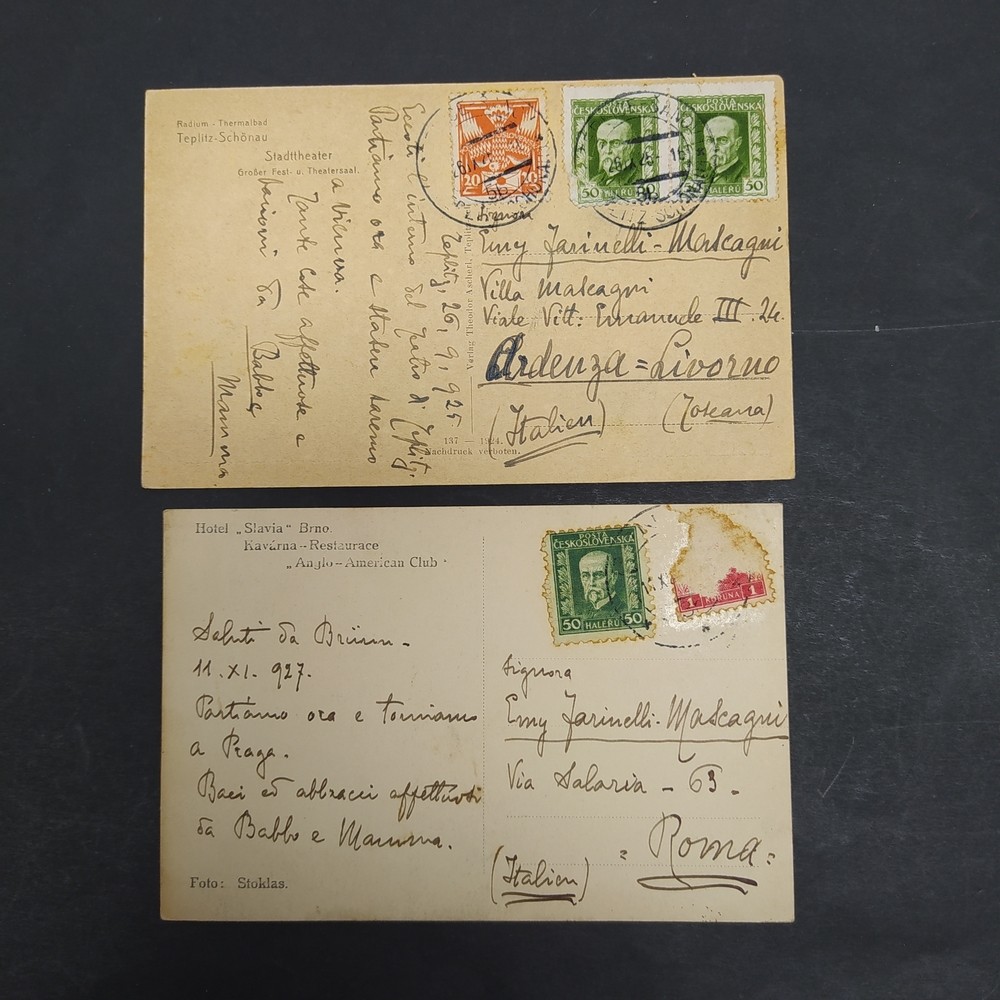 Radium - Thermalbad
Teplitz-Schönau
Stadttheater
Großer Fest- u. Theatersaal.
Eccoti l'interno del Teatro di Teplitz.
Partiamo ora e stasera saremo
a Vienna.
Tante cose affettuose e
bacioni da
Babbo e
Mamma
Teplitz, 26, 9, 925
Verlag Theodor Ascherl, Teplitz
137 — 1924.
Nachdruck verboten.
20 20
POSTA
ČESKOSLOVENSKÁ
50 HALÉŘŮ
POSTA
ČESKOSLOVENSKÁ
HALÉŘŮ 50
Signora
Emy Farinelli-Mascagni
Villa Mascagni
Viale Vitt: Emanuele III. 24.
Ardenza = Livorno
(Italien) (Toscana)
Hotel „Slavia" Brno.
Kavárna-Restaurace
„Anglo-American Club"
POSTA
ČESKOSLOVENSKÁ
50 HALÉŘŮ 50
1 KORUNA 1
Saluti da Brünn-
11. XI. 927.
Partiamo ora e torniamo
a Praga.
Baci ed abbracci affettuosi
da Babbo e Mamma.
Foto: Stoklas.
Signora
Emy Farinelli-Mascagni
Via Salaria - 63 -
= Roma =
(Italien)